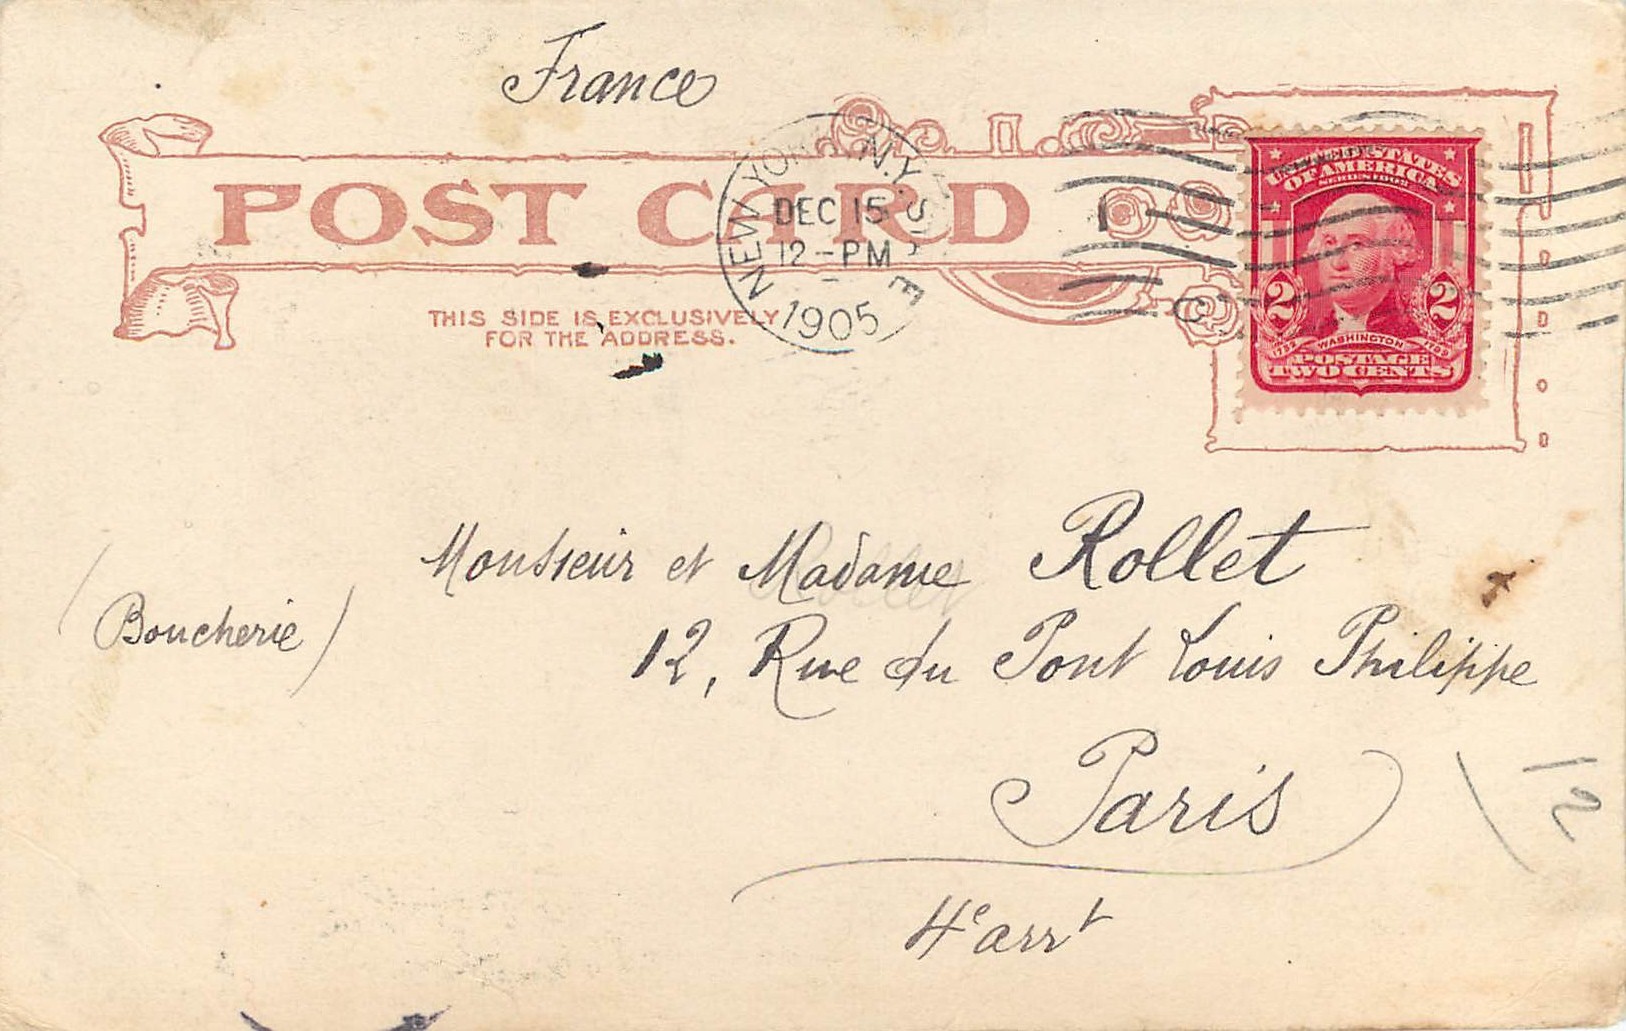 France
POST CARD
NEW YORK, N.Y.
DEC 15
12-PM
1905
THIS SIDE IS EXCLUSIVELY
FOR THE ADDRESS.
UNITED STATES
OF AMERICA
SERIES 1902
2 2
1732 WASHINGTON 1799
POSTAGE
TWO CENTS
Monsieur et Madame Rollet
(Boucherie)
12, Rue du Pont Louis Philippe
Paris
12
4e arrt